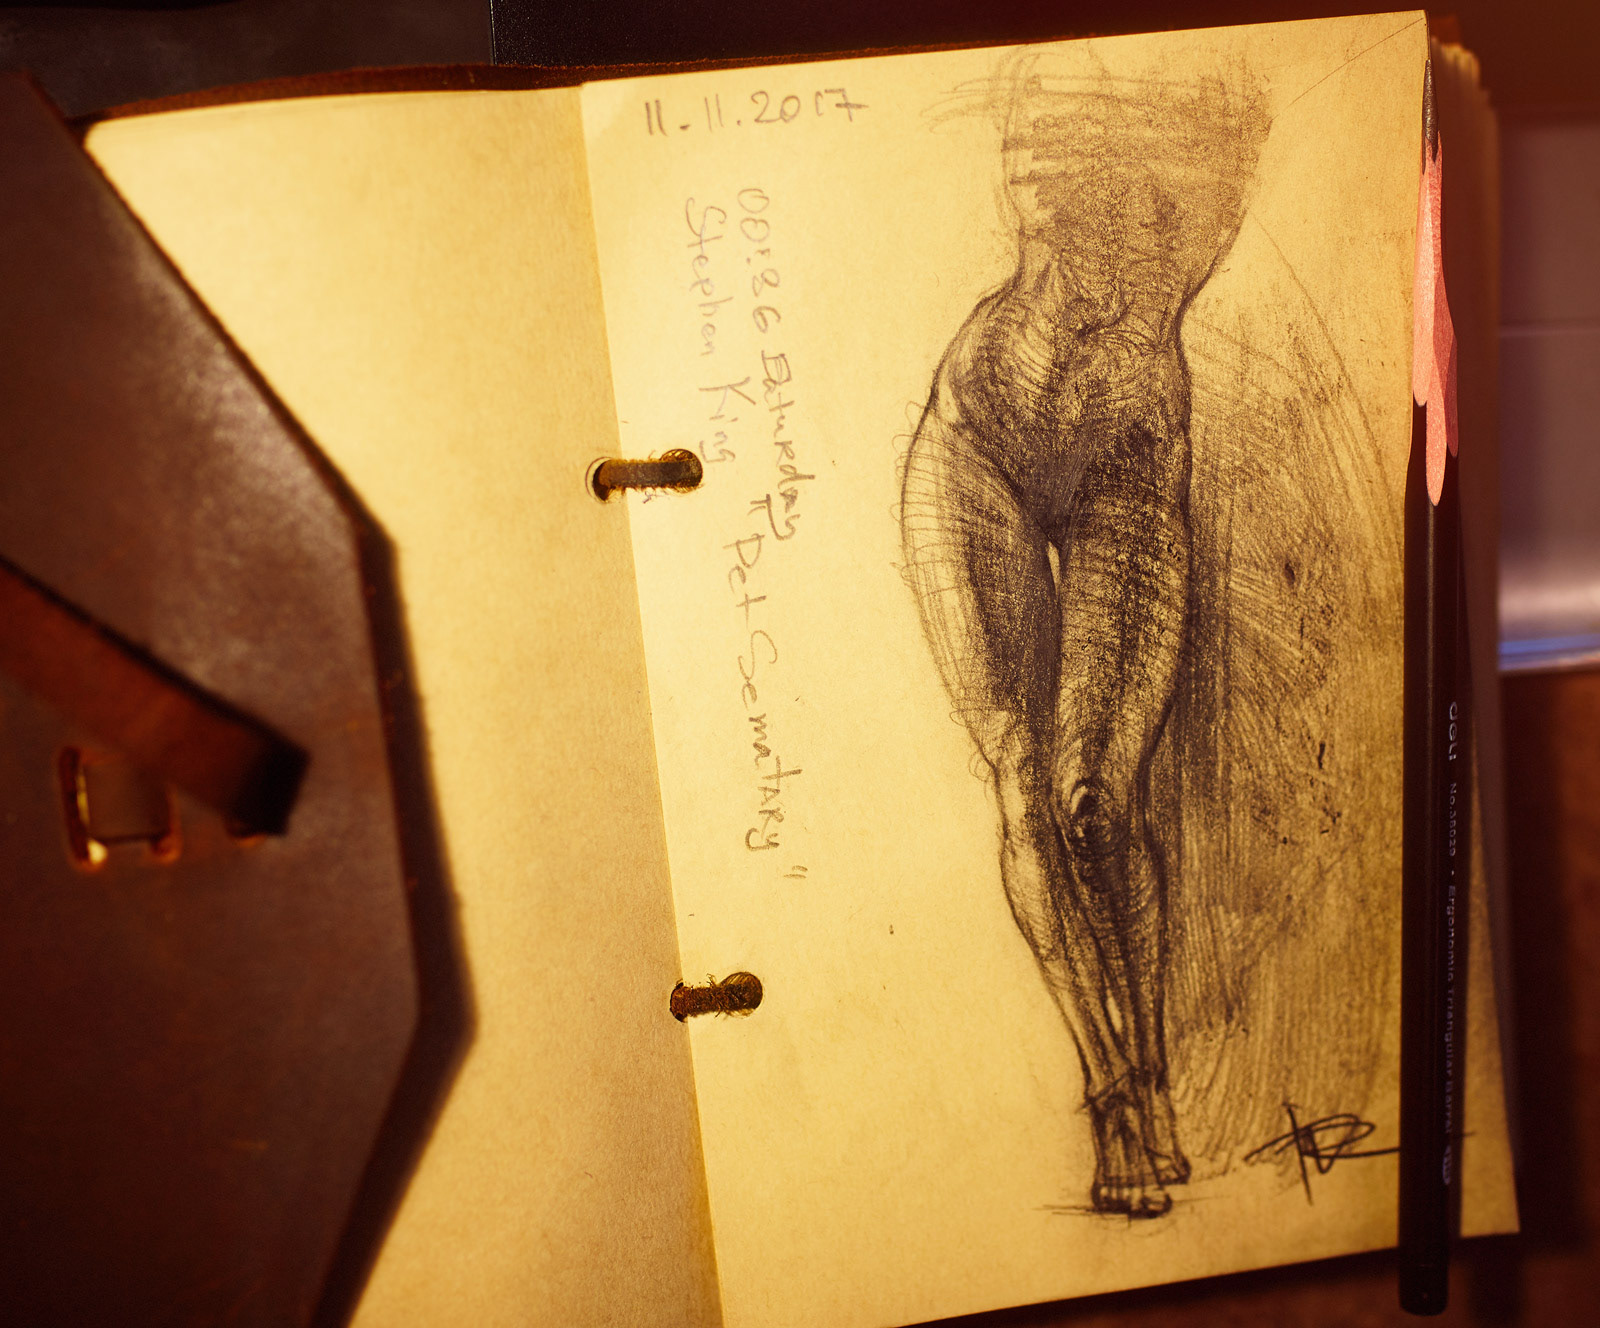 11.11.2017
00:36 Saturday
Stephen King
"Pet Sematary"
deli No.36023 • Ergonomic Triangular Barrel